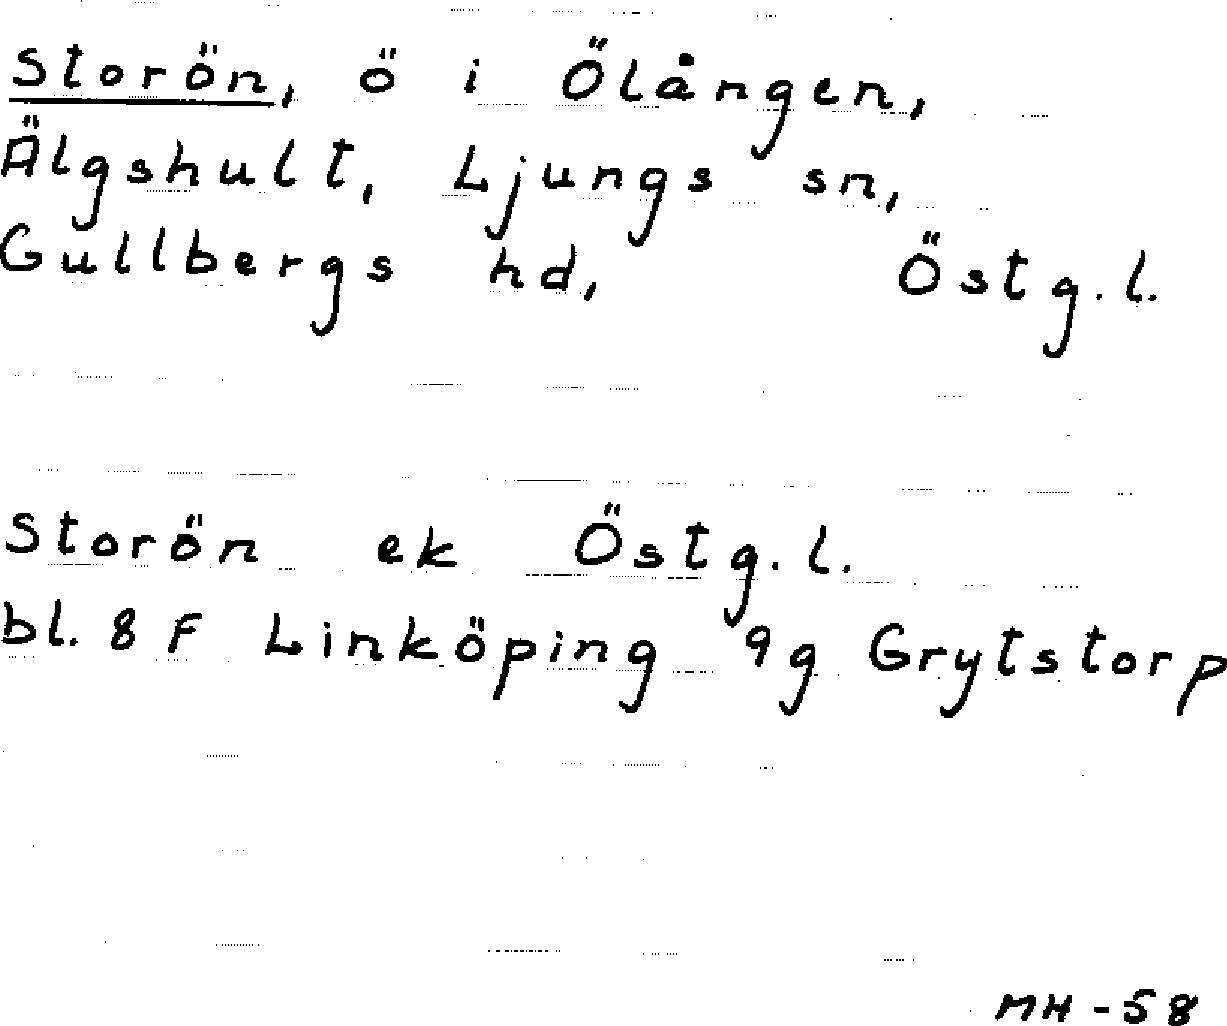 Storön, ö i Ölången,
Älgshult, Ljungs sn,
Gullbergs hd, Östg.l.
Storön ek Östg.l.
bl. 8 F Linköping 9g Grytstorp
MH - 58